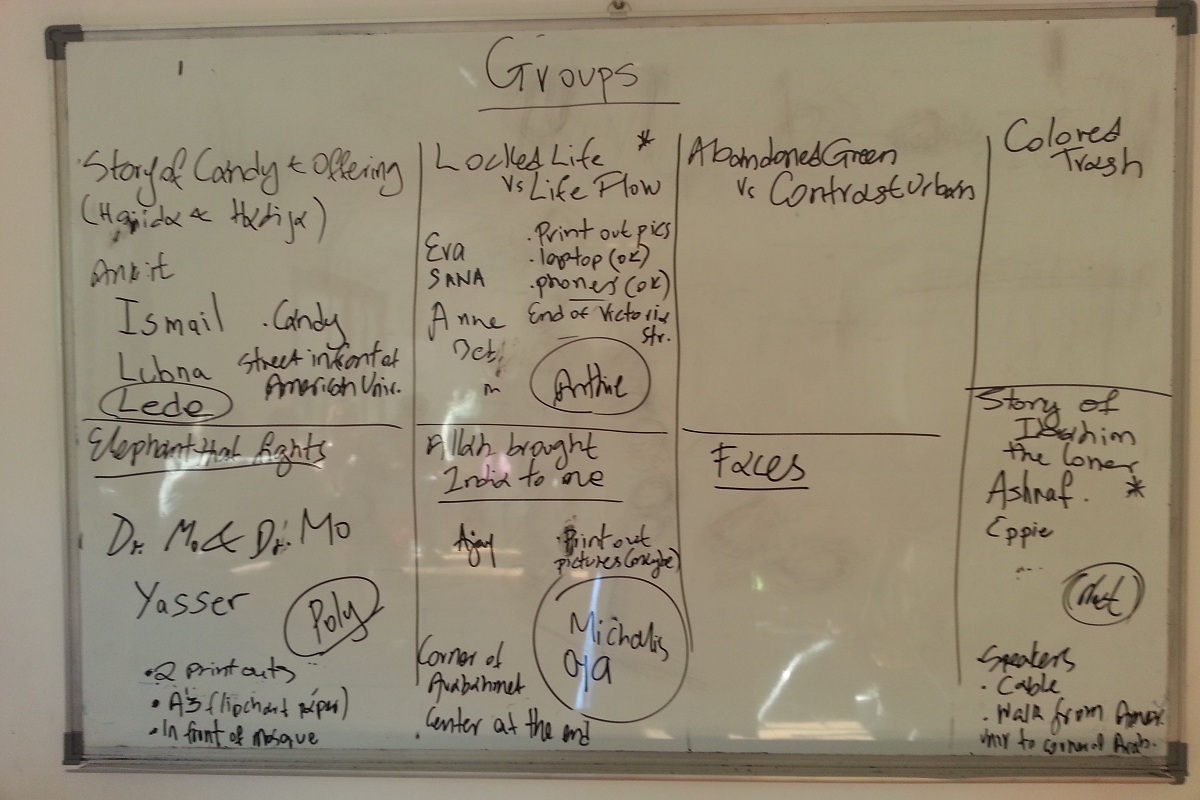 Groups
Story of Candy & Offering
(Hajida & Hadija)
Ankit
Ismail
Lubna
Lede
. Candy
Street infront of
American Univ.
Locked Life *
vs Life Flow
Eva
SANA
Anne
. Print out pics
. laptop (ok)
. phones (ok)
End of Victoria
Str.
Abandoned Green
vs Contrast Urban
Colored
Trash
Elephant that fights
Dr. Mo & Dr. Mo
Yasser
Poly
• 2 print outs
• A3 flipchart paper)
• In front of mosque
Allah brought
India to me
Ajay
. Print out
pictures (maybe)
Michalis
Corner of
Center at the end
Faces
Story of
Ibrahim
the loner
Ashraf. *
Eppie
...
Speakers
. Cable
. Walk from Amer.
Univ to corner of Arab.